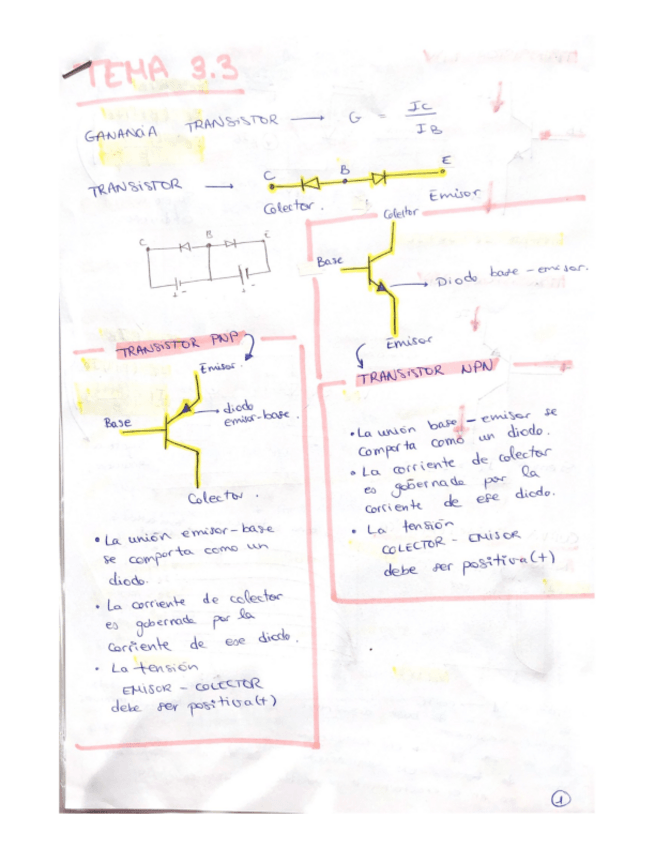 TEMA 3.3
GANANCIA TRANSISTOR → G = IC / IB
TRANSISTOR →
C B E
Colector. Emisor
C B E
+ - + -
Colector
Base
→ Diodo base-emisor.
Emisor
TRANSISTOR NPN
• La unión base-emisor se
comporta como un diodo.
• La corriente de colector
es gobernada por la
corriente de ese diodo.
• La tensión
COLECTOR - EMISOR
debe ser positiva(+)
TRANSISTOR PNP
Emisor.
Base
→ diodo
emisor-base.
Colector.
• La unión emisor-base
se comporta como un
diodo.
• La corriente de colector
es gobernada por la
corriente de ese diodo.
• La tensión
EMISOR - COLECTOR
debe ser positiva(+)
1